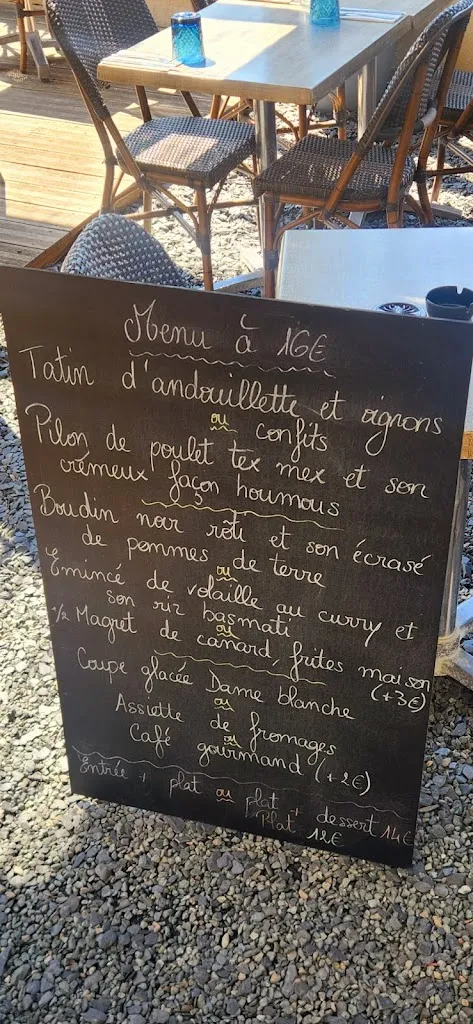 Menu à 16€
Tatin d'andouillette et oignons
confits
ou
Pilon de poulet tex mex et son
crémeux façon houmous
Boudin noir rôti et son écrasé
de pommes de terre
ou
Emincé de volaille au curry et
son riz basmati
ou
1/2 Magret de canard, frites maison
(+3€)
Coupe glacée Dame blanche
ou
Assiette de fromages
ou
Café gourmand (+2€)
Entrée + plat ou plat + dessert 14€
Plat 12€